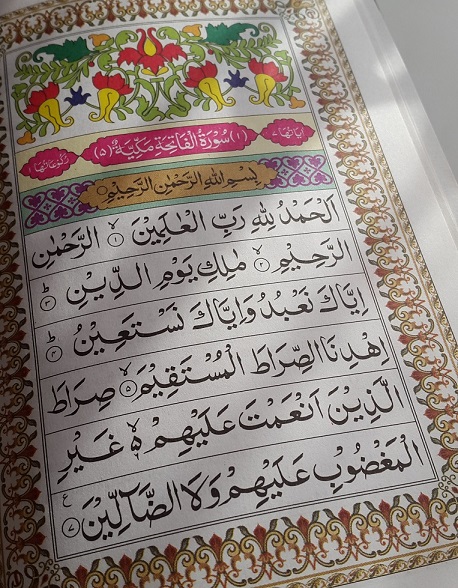 اٰیاتها ۷ (۱) سُوْرَةُ الْفَاتِحَةِ مَكِّیَّةٌ (۵) رکوعاتها ۱
بِسْمِ اللهِ الرَّحْمٰنِ الرَّحِیْمِ
اَلْحَمْدُ لِلّٰهِ رَبِّ الْعٰلَمِیْنَ ۙ۱ الرَّحْمٰنِ
الرَّحِیْمِ ۙ۲ مٰلِكِ یَوْمِ الدِّیْنِ ؕ۳
اِیَّاكَ نَعْبُدُ وَاِیَّاكَ نَسْتَعِیْنُ ؕ۴
اِهْدِنَا الصِّرَاطَ الْمُسْتَقِیْمَ ۙ۵ صِرَاطَ
الَّذِیْنَ اَنْعَمْتَ عَلَیْهِمْ ۙ۬ غَیْرِ
الْمَغْضُوْبِ عَلَیْهِمْ وَلَا الضَّآلِّیْنَ ۧ۷